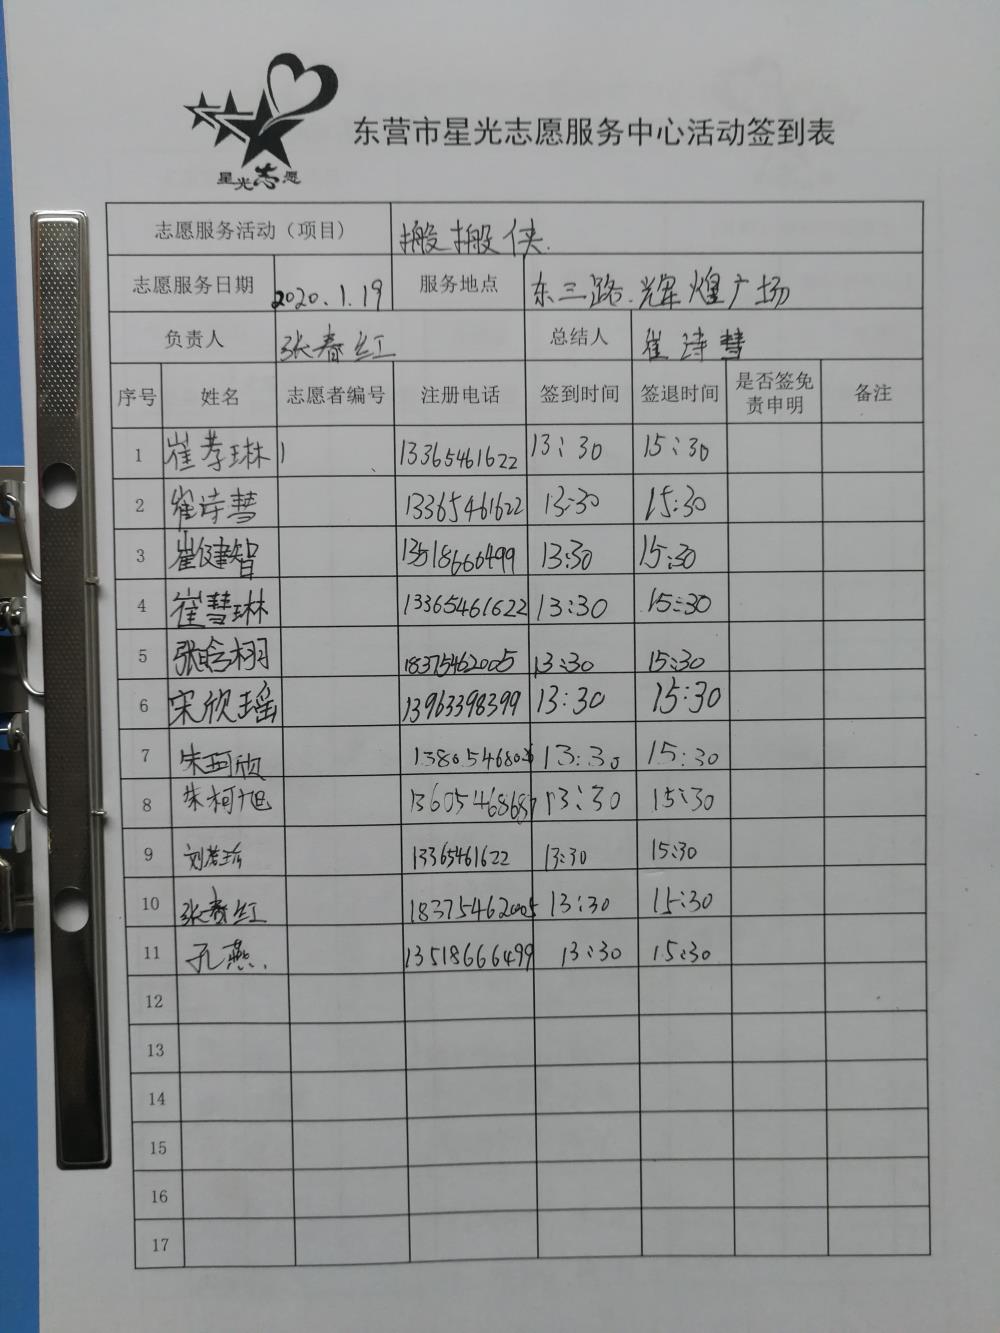 星光志愿
东营市星光志愿服务中心活动签到表
志愿服务活动（项目） 搬搬侠.
志愿服务日期 2020.1.19 服务地点 东三路.辉煌广场
负责人 张春红 总结人 崔诗慧
序号 姓名 志愿者编号 注册电话 签到时间 签退时间 是否签免责申明 备注
1 崔孝琳 13365461622 13:30 15:30
2 崔诗慧 13365461622 13:30 15:30
3 崔健智 13518666499 13:30 15:30
4 崔慧琳 13365461622 13:30 15:30
5 张晗栩 18375462005 13:30 15:30
6 宋欣瑶 13963398399 13:30 15:30
7 朱珂欣 13:30 15:30
8 朱柯旭 13605468687 13:30 15:30
9 13365461622 13:30 15:30
10 张春红 18375462005 13:30 15:30
11 孔燕. 13518666499 13:30 15:30
12
13
14
15
16
17